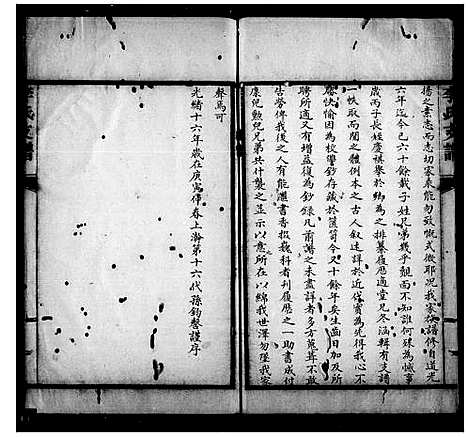 揚之素志而志切家乘能勿致慨式微耶况我家族譜修自道光
六年迄今已六十餘載子姓兄弟幾乎覿面不知誰何殊為憾事
歲丙子長姪慶祺攀於鄉為之排纂履歷適堂兄冬涵輯有支譜
一帙取而閱之體例本之古人叙述詳於近代實為先得我心不
禁快愉因為校讐鈔存藏於篋笥今又十餘年矣生齒日加及所
聘所適又有增益復為鈔錄凡前譜之未盡詳者多方蒐茸不敢
告勞俾我後之人有能濃書香掇巍科者刋履歷之一助書成付
康紀勲兒弟共什襲之並示以意所在以綿我世澤勿墜我家
聲焉可
光緒十六年歲在庚寅仲春上澣第十六代孫鈞謹序